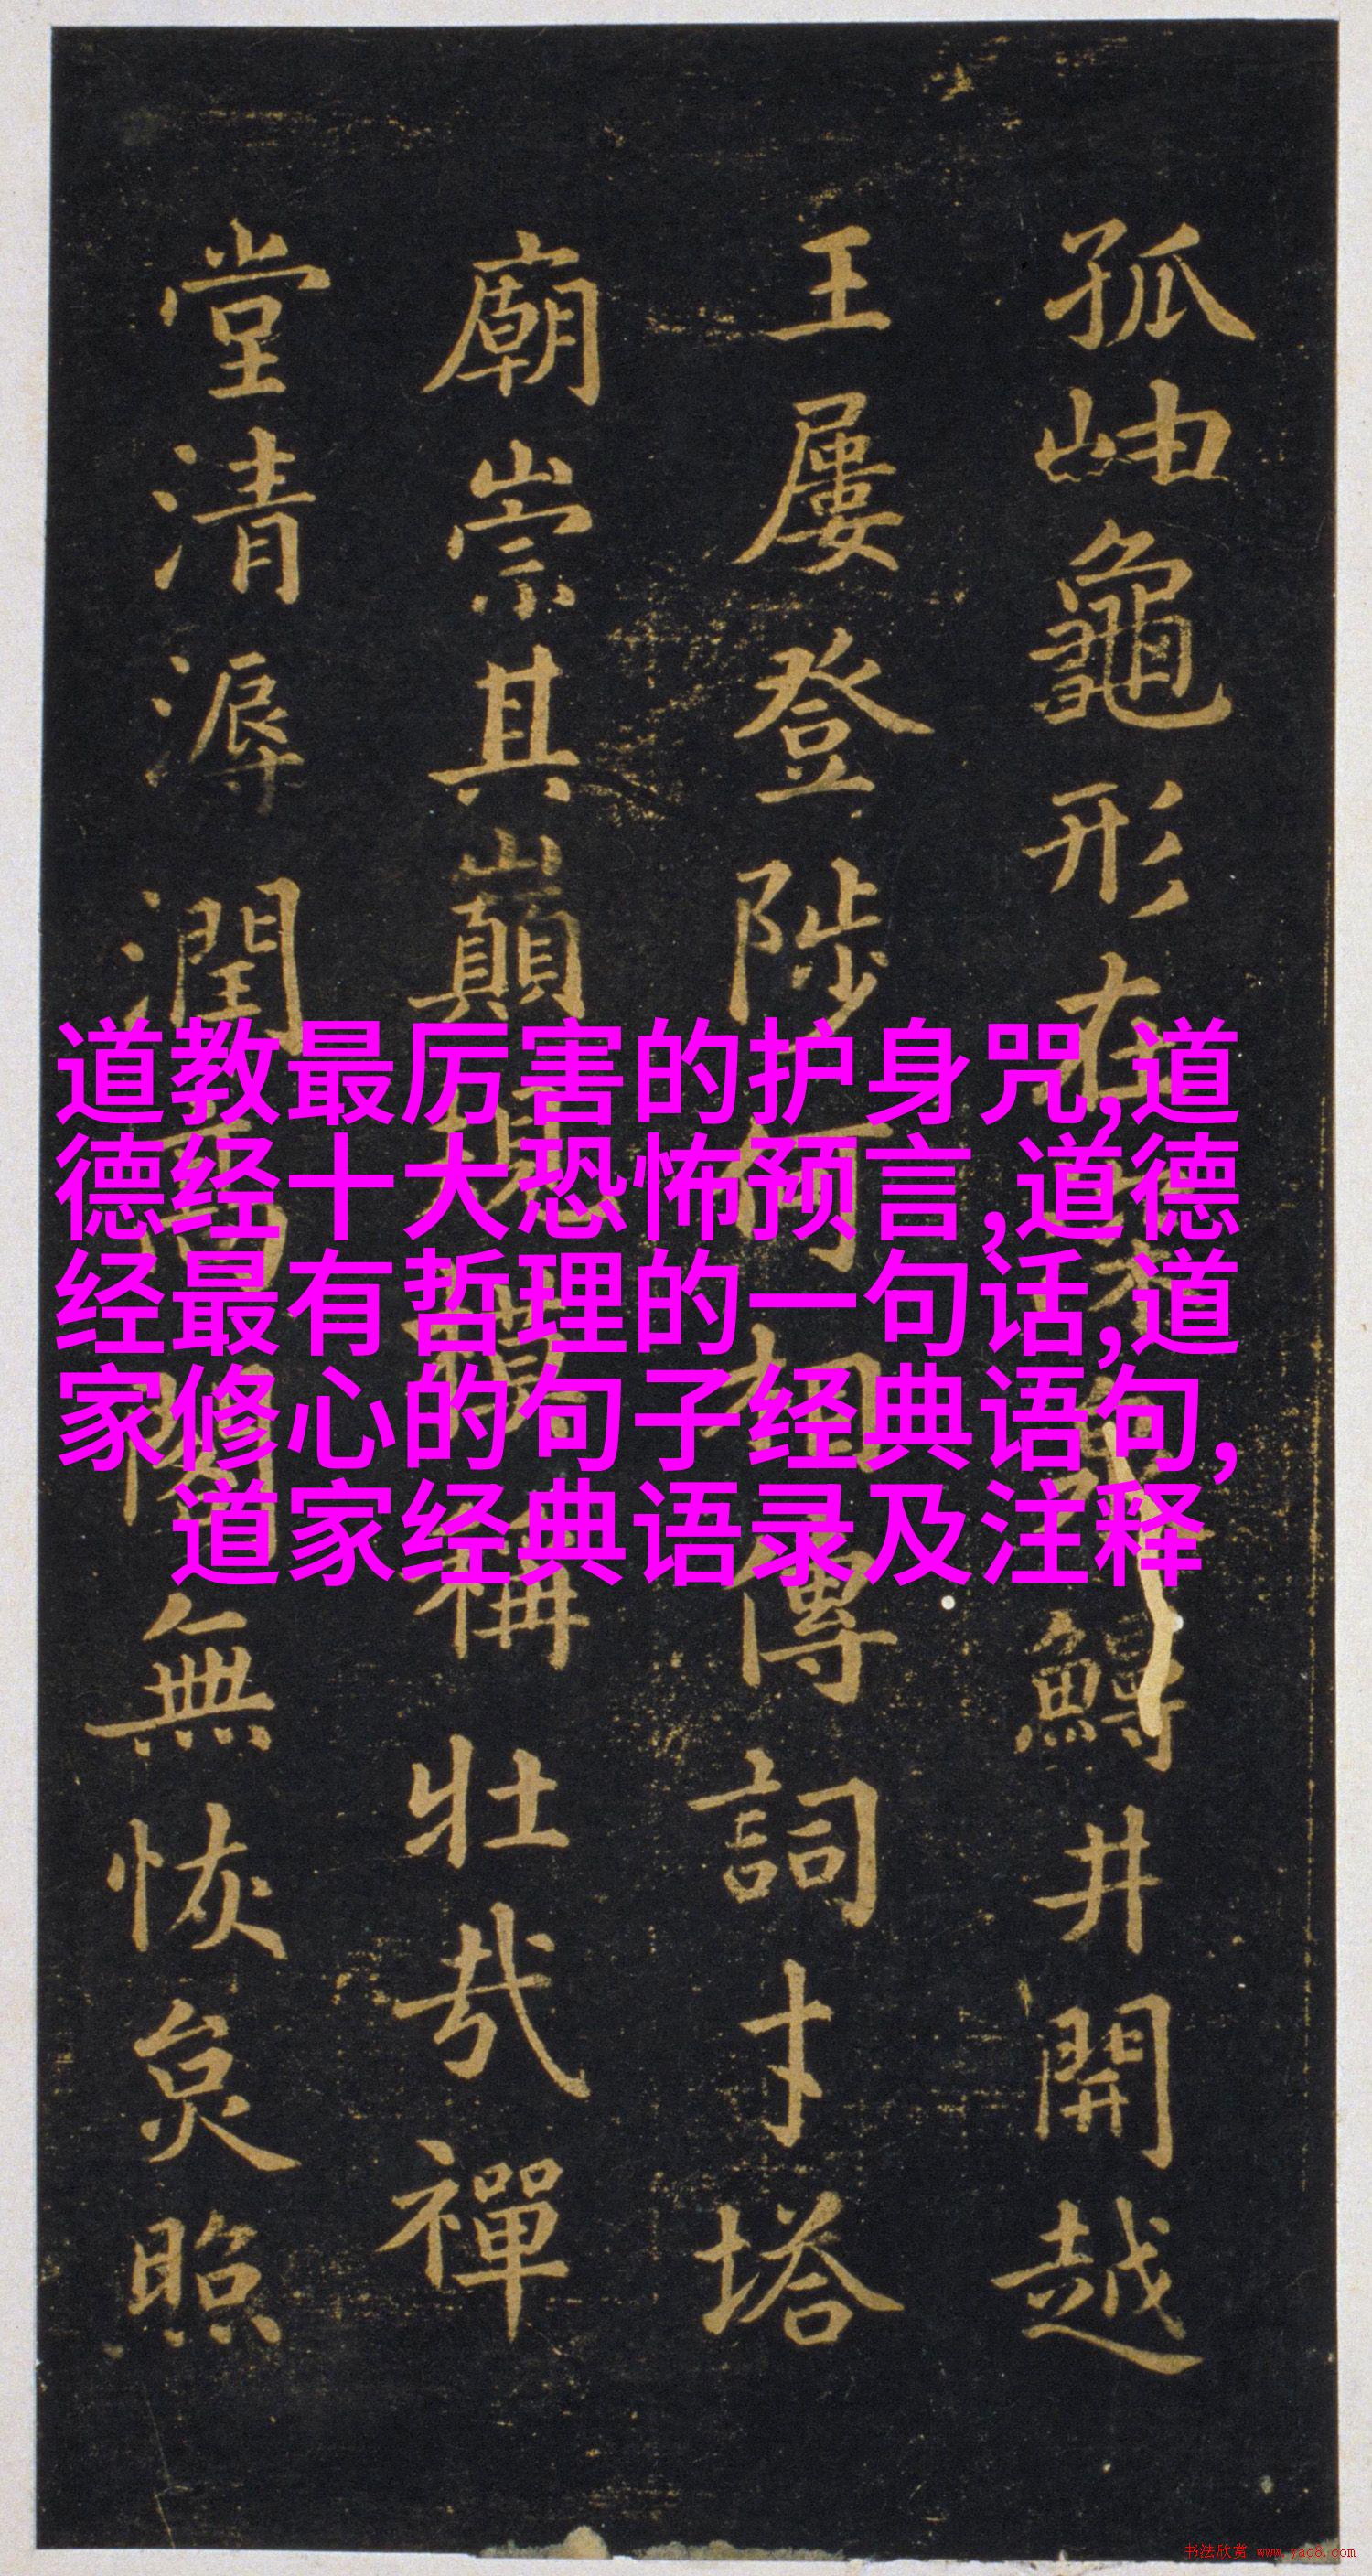 孤岫龜形在井開越
王屢登陟何相傳詞才塔
廟崇其巔規模稱壯哉禪
堂清溽潤高閣無恢炱照
道教最厉害的护身咒,道
德经十大恐怖预言,道德
经最有哲理的一句话,道
家修心的句子经典语句,
道家经典语录及注释
书法欣赏 www.yac8.com